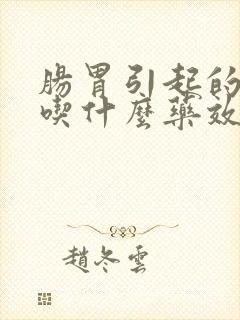 腸胃引起的
喫什麼藥效
趙冬雲